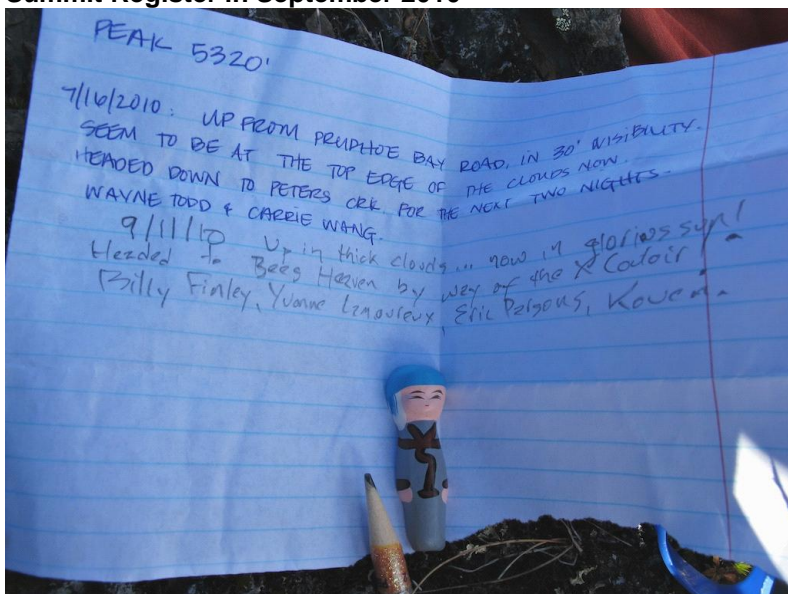 Summit Register in September 2010
PEAK 5320'
7/16/2010: UP FROM PRUDHOE BAY ROAD, IN 30' VISIBILITY.
SEEM TO BE AT THE TOP EDGE OF THE CLOUDS NOW.
HEADED DOWN TO PETERS CRK. FOR THE NEXT TWO NIGHTS.
WAYNE TODD & CARRIE WANG.
9/11/10 Up in thick clouds... now in glorios sun!
Headed to Beeg Heaven by way of the X Coloir!
Billy Finley, Yvonne Lamoureux, Eric Parsons,